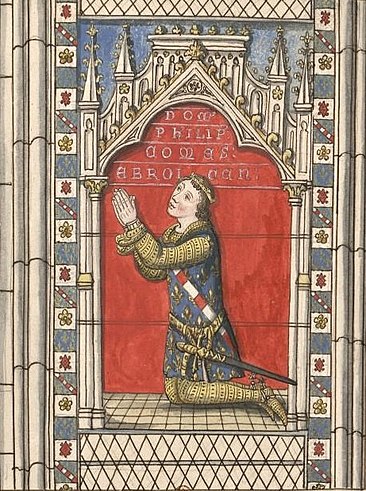 DOM
PHILIP
COMES:
EBROICAN.